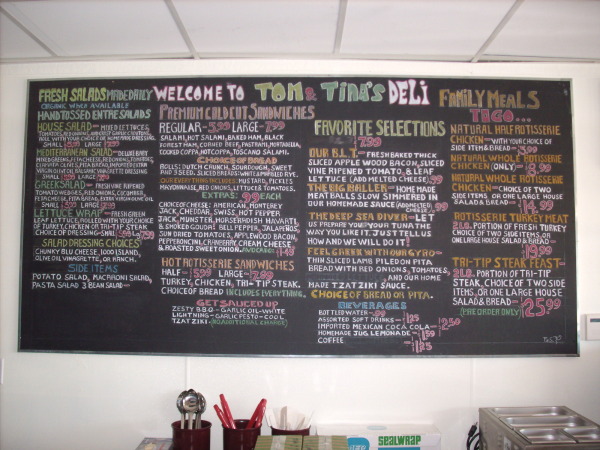 WELCOME TO TOM & TINA'S DELI
FRESH SALADS MADE DAILY
ORGANIC WHEN AVAILABLE
HAND TOSSED ENTRE SALADS
HOUSE SALAD MIXED LETTUCES,
ROLL WITH YOUR CHOICE OF HOMEMADE DRESSING
SMALL 5.99 LARGE 7.99
MEDITERRANEAN SALAD
SMALL LARGE
GREEK SALAD FRESH VINE RIPENED
TOMATOES, RED ONIONS, CUCUMBER,
LETTUCE WRAP FRESH GREEN
LEAF LETTUCE, ROLLED WITH YOUR CHOICE
OF TURKEY, CHICKEN OR TRI-TIP STEAK
CHOICE OF DRESSING
SALAD DRESSING CHOICES
CHUNKY BLU CHEESE, 1000 ISLAND,
OLIVE OIL VINAIGRETTE, OR RANCH.
SIDE ITEMS
POTATO SALAD, MACARONI SALAD,
PASTA SALAD 3 BEAN SALAD
PREMIUM COLD CUT SANDWICHES
REGULAR 5.99 LARGE 7.99
SALAMI, HOT SALAMI, BAKED HAM, BLACK
FOREST HAM, CORNED BEEF, PASTRAMI, MORTADELLA,
COOKED COPPA, HOT COPPA, TOSCANO SALAMI.
CHOICE OF BREAD
ROLLS: DUTCH CRUNCH, SOURDOUGH, SWEET
AND 3 SEED. SLICED BREADS: WHITE & MARBLED RYE
OUR EVERYTHING INCLUDES: MUSTARD, PICKLES
MAYONNAISE, RED ONIONS, LETTUCE & TOMATOES.
EXTRAS: .99 EACH
CHOICE OF CHEESE: AMERICAN, MONTEREY
JACK, CHEDDAR, SWISS, HOT PEPPER
JACK, MUNSTER, HORSERADISH HAVARTI,
& SMOKED GOUDA: BELL PEPPER, JALAPEÑOS,
SUN DRIED TOMATOES, APPLEWOOD BACON,
PEPPERONCINI, CRANBERRY, CREAM CHEESE
& ROASTED SWEET ONION, AVOCADO: 1.49
HOT ROTISSERIE SANDWICHES
HALF 5.99 LARGE 7.99
TURKEY, CHICKEN, TRI-TIP STEAK.
CHOICE OF BREAD INCLUDES EVERYTHING.
GET SAUCED UP
ZESTY BBQ - GARLIC OIL-WHITE
LIGHTNING - GARLIC PESTO - COOL
TZATZIKI (NO ADDITIONAL CHARGE)
FAVORITE SELECTIONS
7.99
OUR B.L.T. FRESH BAKED THICK
SLICED APPLE WOOD BACON, SLICED
VINE RIPENED TOMATO, & LEAF
LETTUCE (ADD MELTED CHEESE .99)
THE BIG BALLER HOME MADE
MEAT BALLS SLOW SIMMERED IN
OUR HOMEMADE SAUCE
THE DEEP SEA DIVER LET
US PREPARE YOUR TUNA THE
WAY YOU LIKE IT. JUST TELL US
HOW AND WE WILL DO IT!
FEEL GREEK WITH OUR GYRO
THIN SLICED LAMB PILED ON PITA
BREAD WITH RED ONIONS, TOMATOES,
AND OUR HOME
MADE TZATZIKI SAUCE.
CHOICE OF BREAD OR PITA.
BEVERAGES
BOTTLED WATER .99
ASSORTED SOFT DRINKS 1.25
IMPORTED MEXICAN COCA COLA 2.50
HOMEMADE JUG LEMONADE .99
COFFEE 1.25
FAMILY MEALS
TO GO...
NATURAL HALF ROTISSERIE
CHICKEN WITH YOUR CHOICE OF
SIDE ITEMS & BREAD 8.99
NATURAL WHOLE ROTISSERIE
CHICKEN (ONLY) 9.99
NATURAL WHOLE ROTISSERIE
CHICKEN CHOICE OF TWO
SIDE ITEMS, OR ONE LARGE HOUSE
SALAD & BREAD 14.99
ROTISSERIE TURKEY MEAT
2 LB. PORTION OF FRESH TURKEY
CHOICE OF TWO SIDE ITEMS, OR
ONE LARGE HOUSE SALAD & BREAD
19.99
TRI-TIP STEAK FEAST
2 LB. PORTION OF TRI-TIP
STEAK, CHOICE OF TWO SIDE
ITEMS, OR ONE LARGE HOUSE
SALAD & BREAD 25.99
(PRE ORDER ONLY)
SEALWRAP